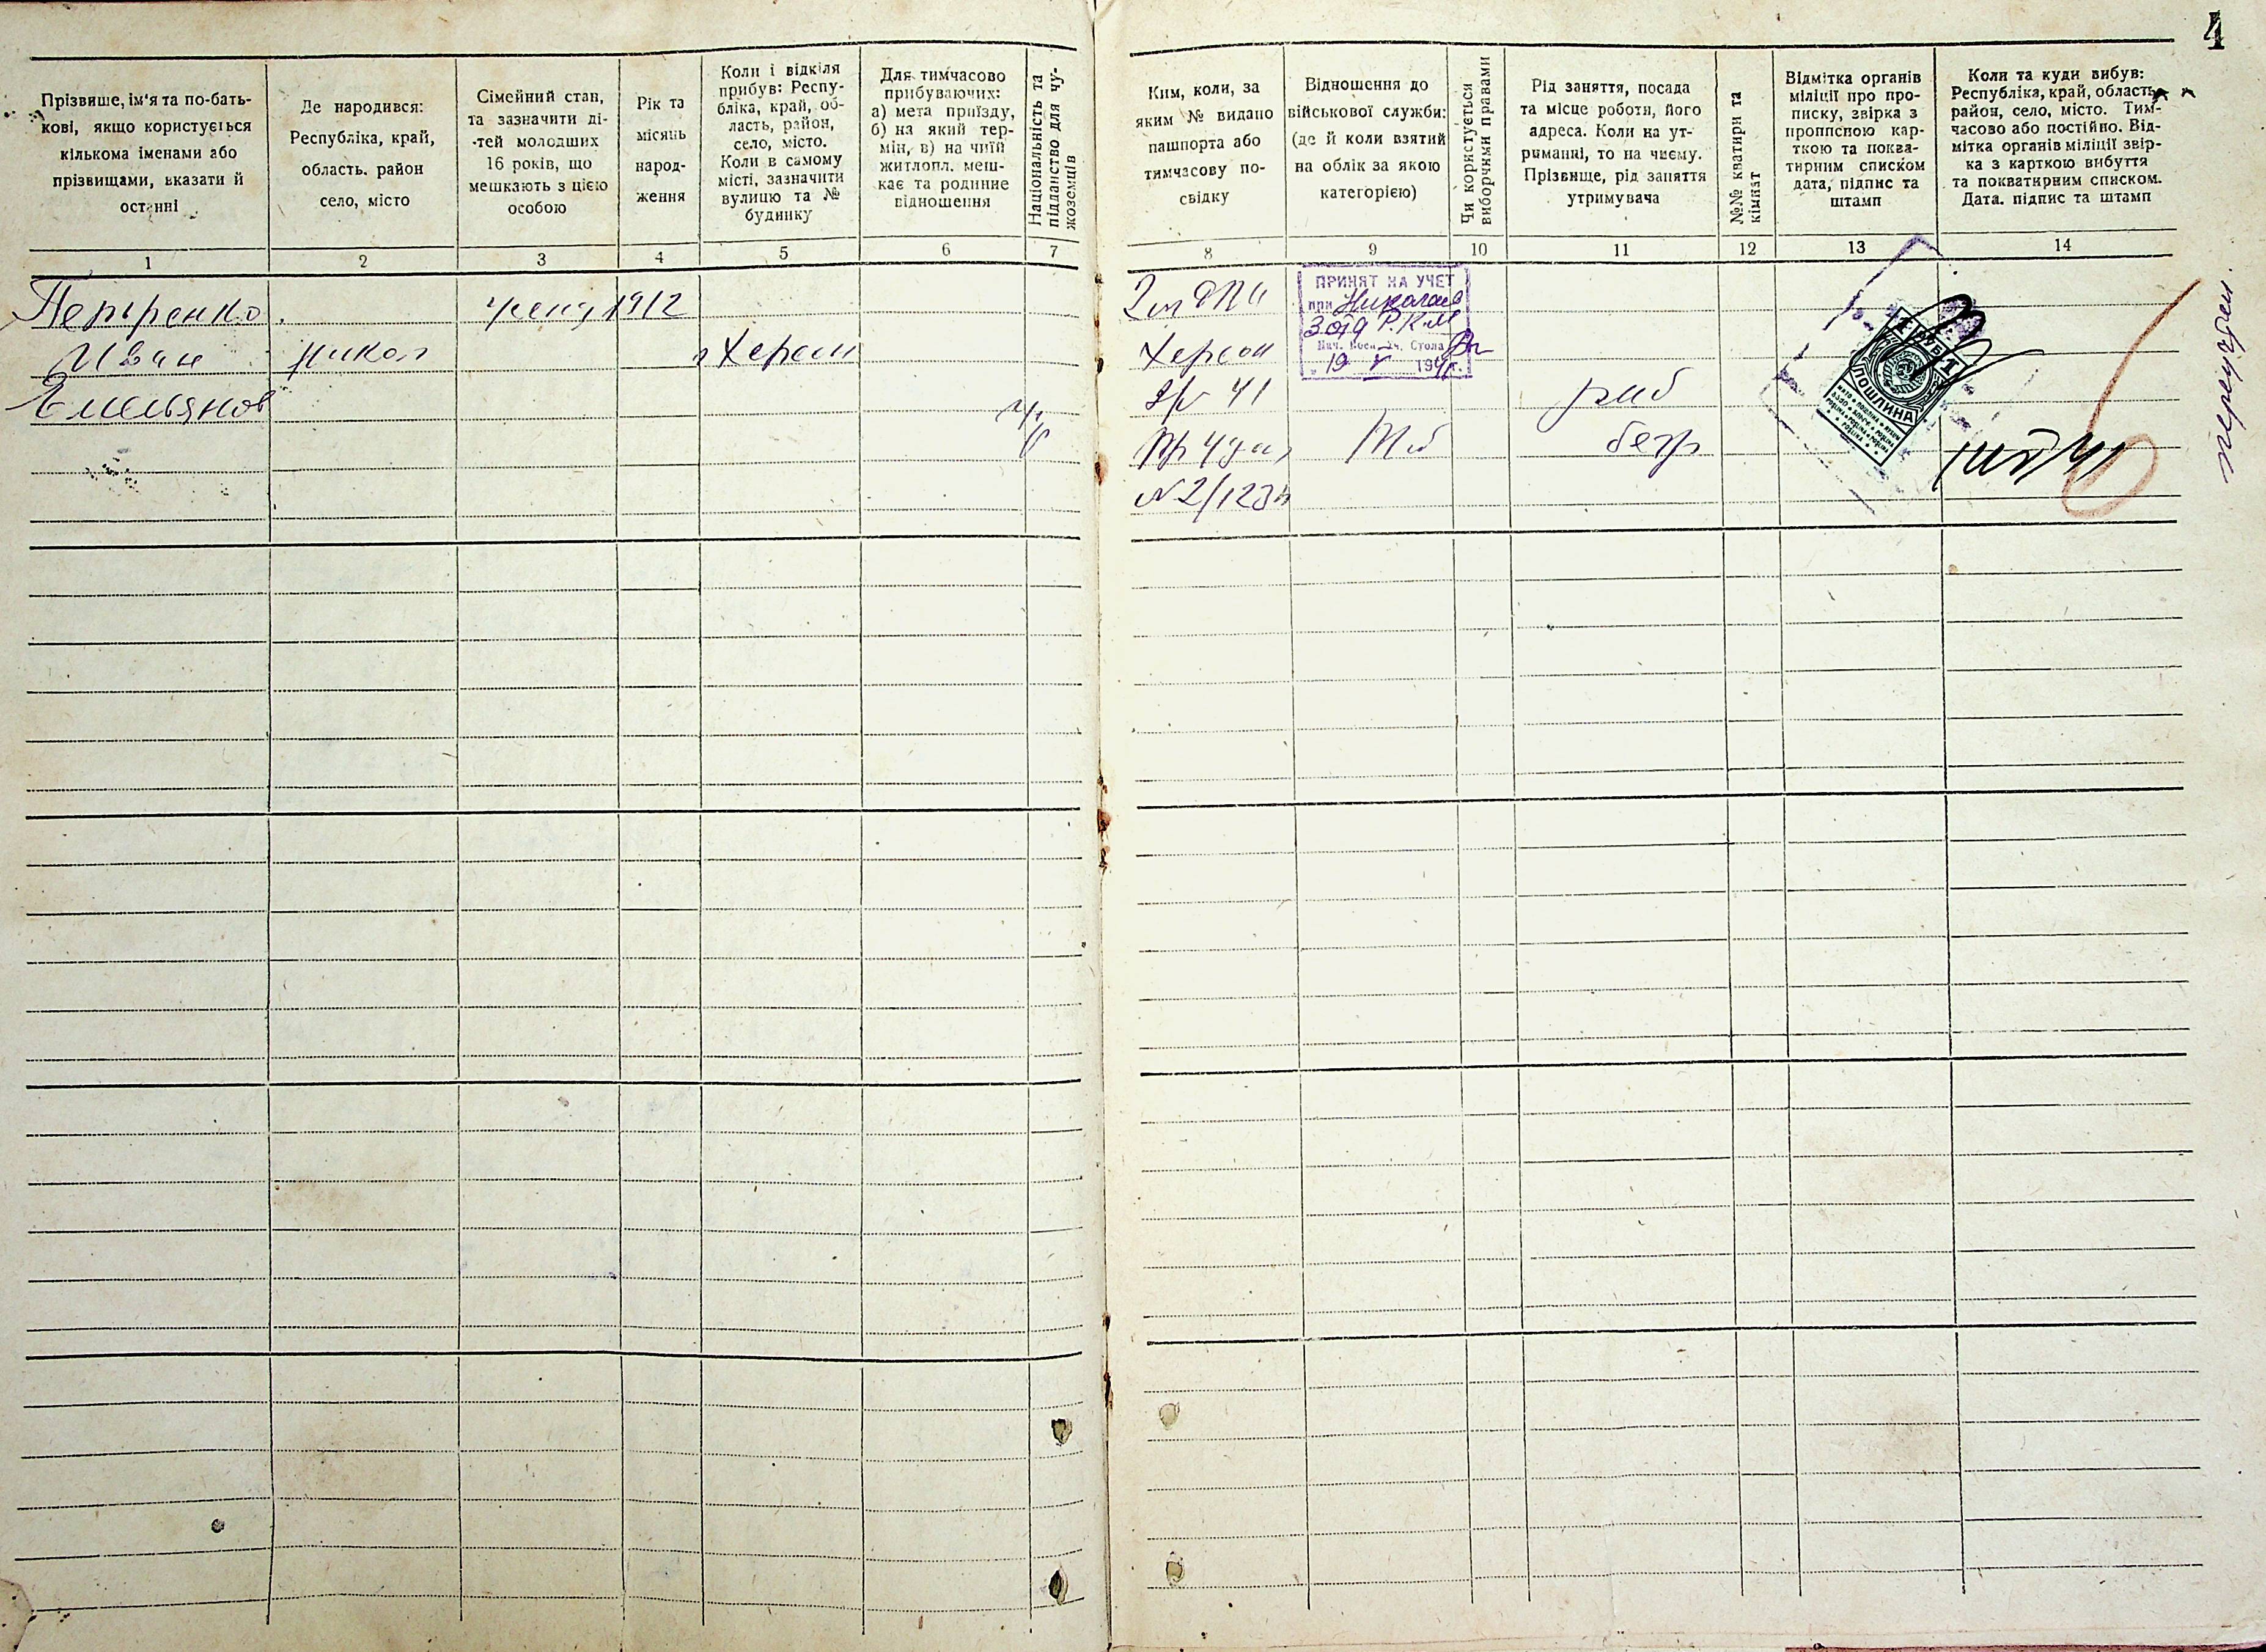 4
Прізвише, ім'я та по-бать-
кові, якщо користується
кількома іменами або
прізвищами, вказати й
останні
Де народився:
Республіка, край,
область. район
село, місто
Сімейний стан,
та зазначити ді-
тей молодших
16 років, що
мешкають з цією
особою
Рік та
місяць
народ-
ження
Коли і відкіля
прибув: Респу-
бліка, край, об-
ласть, район,
село, місто.
Коли в самому
місті, зазначити
вулицю та №
будинку
Для тимчасово
прибуваючих:
а) мета приїзду,
б) на який тер-
мін, в) на чиїй
житлопл. меш-
кає та родинне
відношення
Національність та
підданство для чу-
жоземців
Ким, коли, за
яким № видано
пашпорта або
тимчасову по-
свідку
Відношення до
військової служби:
(де й коли взятий
на облік за якою
категорією)
Чи користується
виборчими правами
Рід заняття, посада
та місце роботи, його
адреса. Коли на ут-
риманні, то на чиєму.
Прізвище, рід заняття
утримувача
№№ кватири та
кімнат
Відмітка органів
міліції про про-
писку, звірка з
прописною кар-
ткою та поква-
тирним списком
дата, підпис та
штамп
Коли та куди вибув:
Республіка, край, область,
район, село, місто. Тим-
часово або постійно. Від-
мітка органів міліції звір-
ка з карткою вибуття
та покватирним списком.
Дата. підпис та штамп
1 2 3 4 5 6 7 8 9 10 11 12 13 14
Петренко
1912
Иван
Никол
Херсон
Емельянов
Херсон
41
ПРИНЯТ НА УЧЕТ
при Николаев
3 отд Р.К.М
Нач. Воен. Уч. Стола
19 V 194 г.
раб
1 РУБ 1
ПОШЛИНА